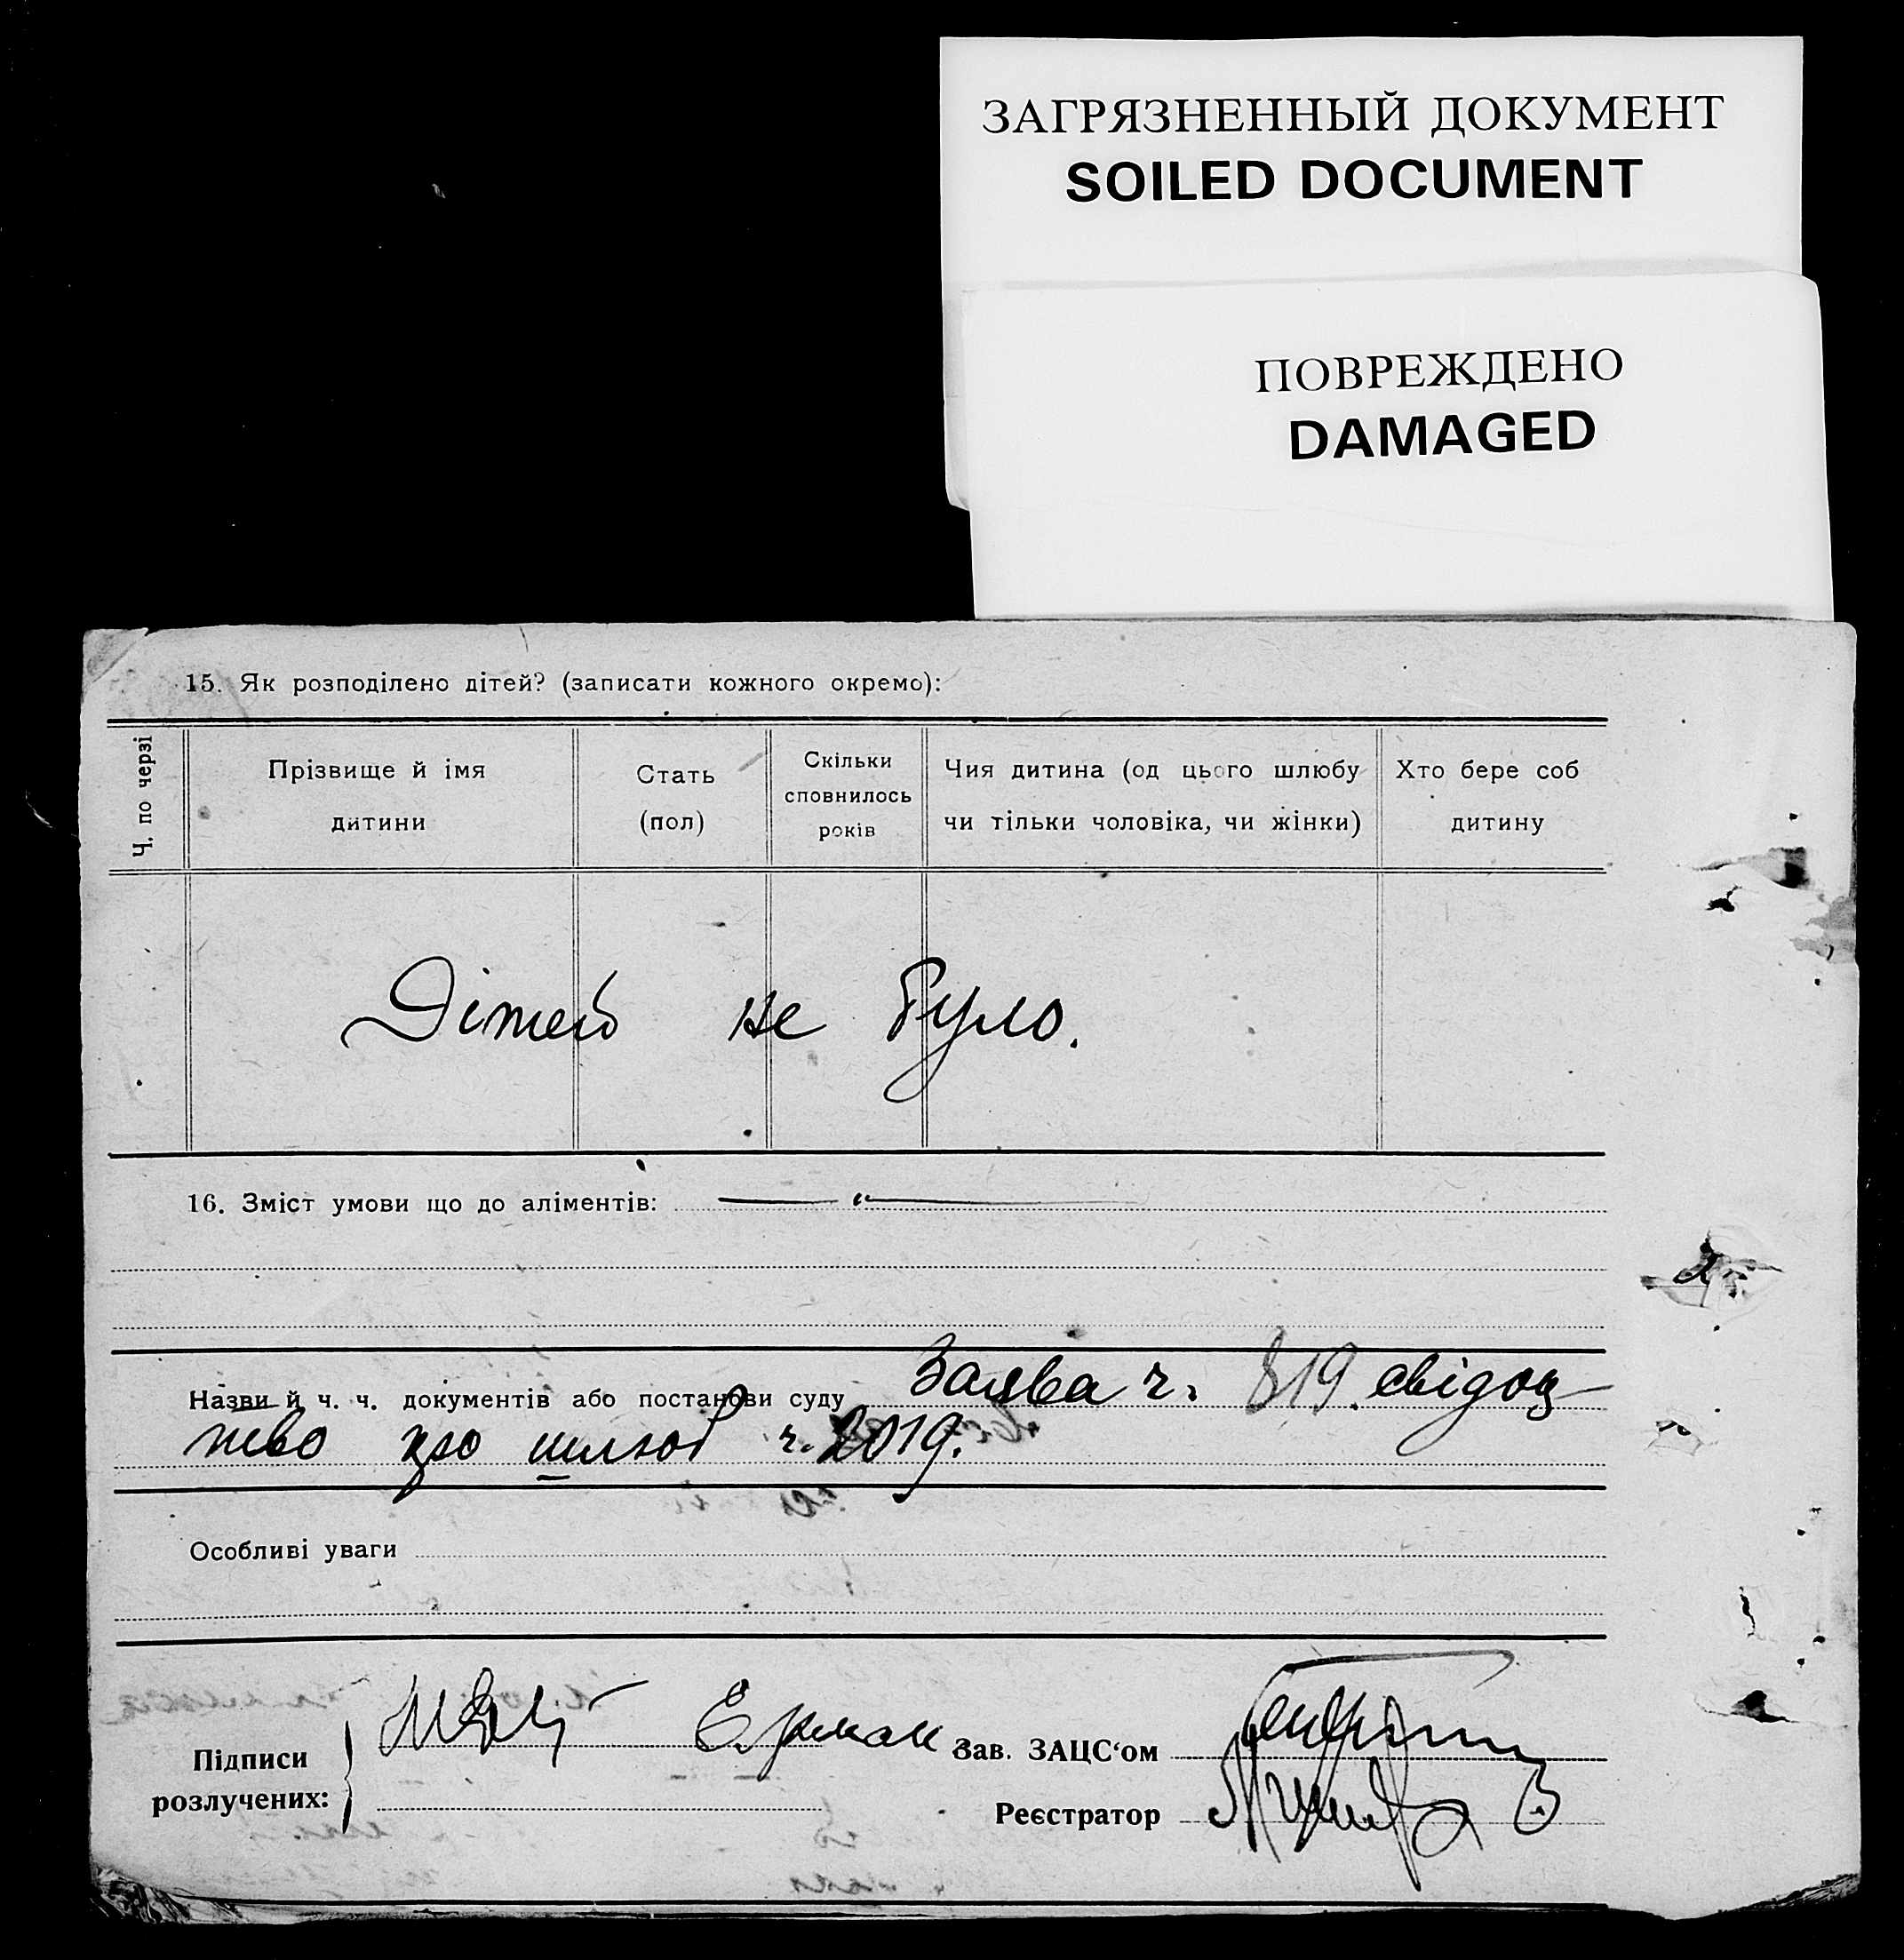 ЗАГРЯЗНЕННЫЙ ДОКУМЕНТ
SOILED DOCUMENT
ПОВРЕЖДЕНО
DAMAGED
15. Як розподілено дітей? (записати кожного окремо):
Ч. по черзі
Прізвище й імя дитини
Стать (пол)
Скільки сповнилось років
Чия дитина (од цього шлюбу чи тільки чоловіка, чи жінки)
Хто бере соб дитину
Дітей не було.
16. Зміст умови що до аліментів: — „ —
Назви й ч. ч. документів або постанови суду Заява ч. 819. свідоц-
тво про шлюб ч. 2019.
Особливі уваги
Підписи розлучених:
Ермак
Зав. ЗАЦС‘ом
Реєстратор